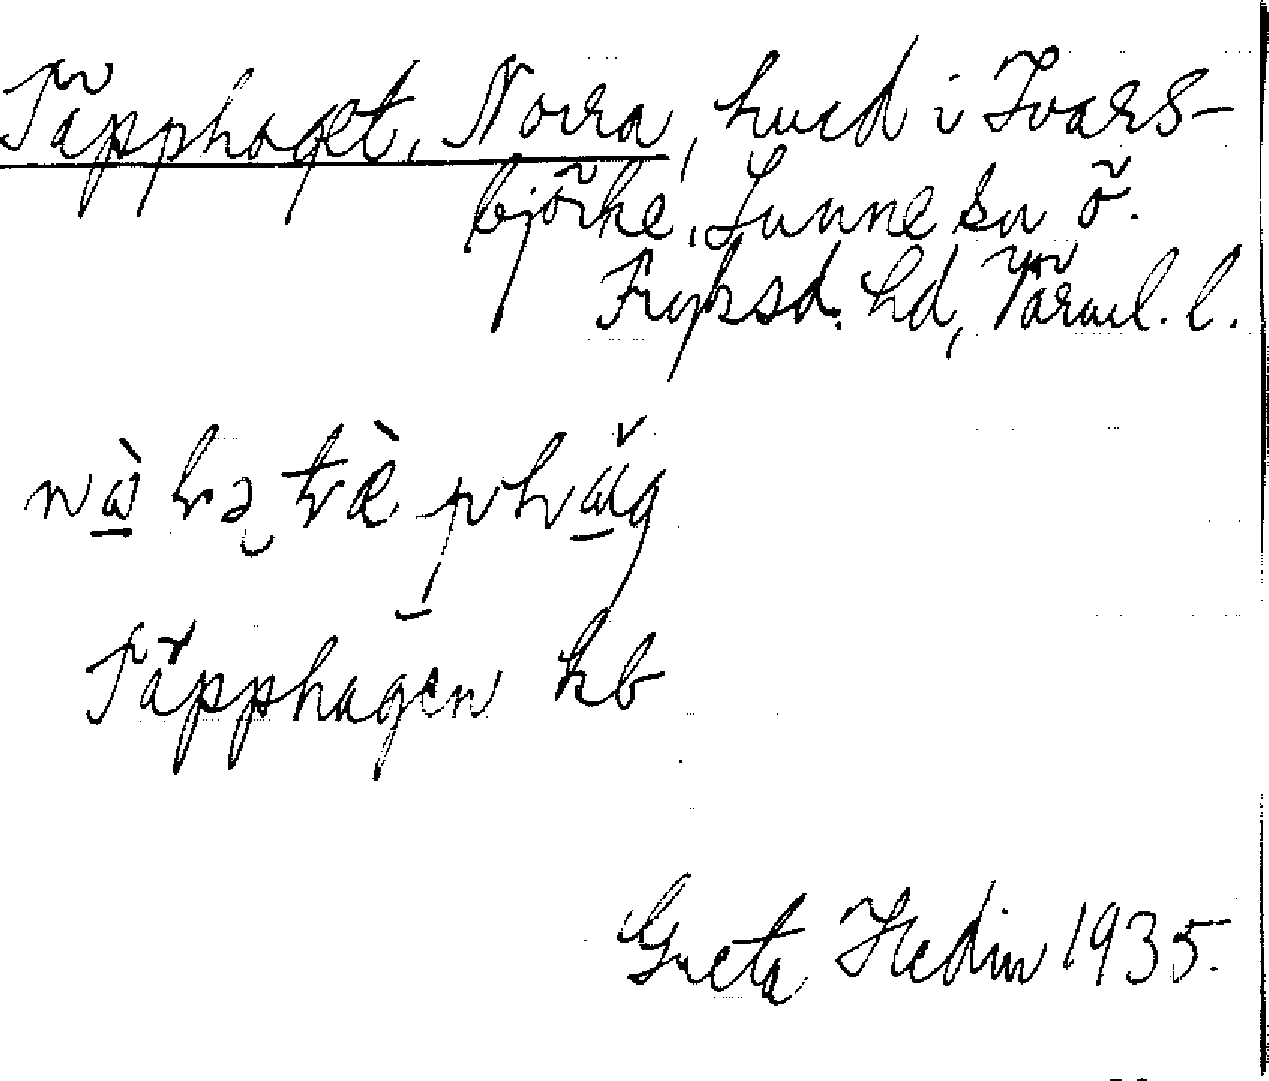 Täpphaget, Norra, hmd i Ivars-
björke, Sunne sn ö.
Fryksd. hd, Värml. l.
nà̱ rə tæ̀ phα̱̌g
Täpphagen kb
Greta Hedin 1935.